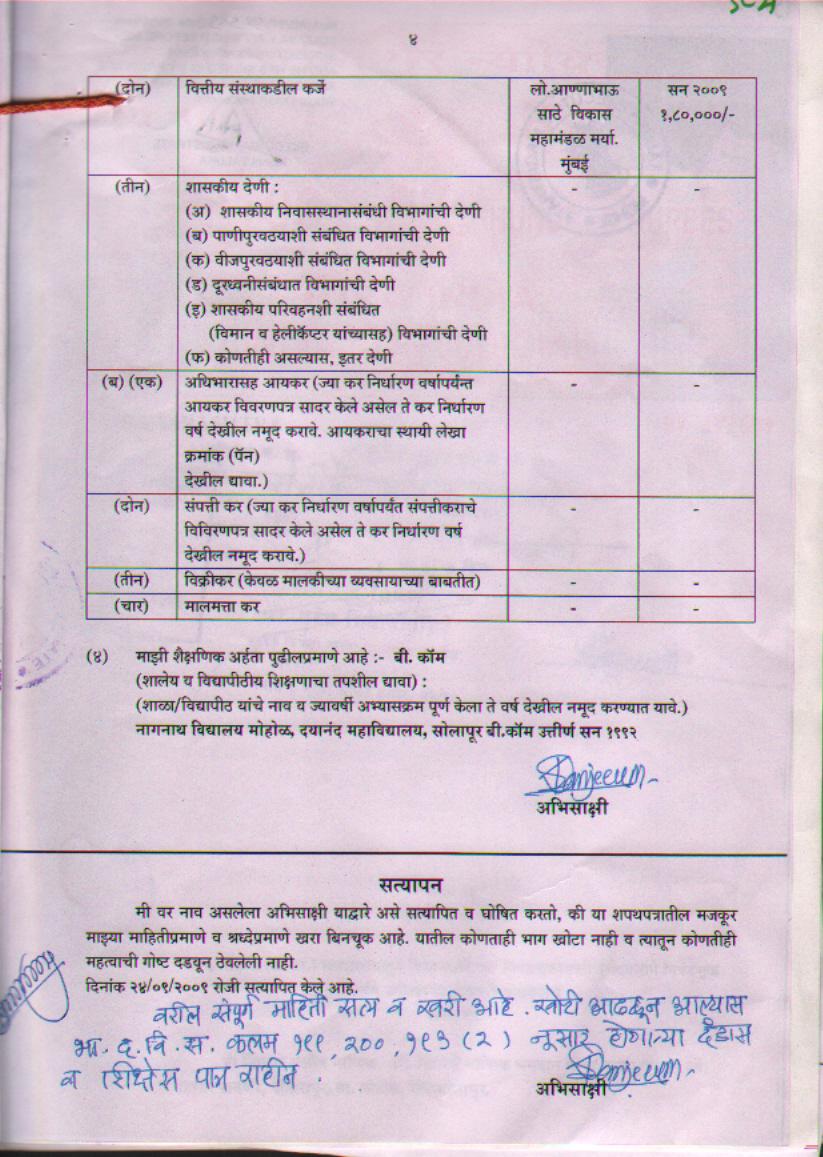 ४
(दोन) वित्तीय संस्थाकडील कर्जे लो.आण्णाभाऊ सन २००९
साठे विकास १,८०,०००/-
महामंडळ मर्या.
मुंबई
(तीन) शासकीय देणी : - -
(अ) शासकीय निवासस्थानासंबंधी विभागांची देणी
(ब) पाणीपुरवठयाशी संबंधित विभागांची देणी
(क) वीजपुरवठयाशी संबंधित विभागांची देणी
(ड) दूरध्वनीसंबंधात विभागांची देणी
(इ) शासकीय परिवहनशी संबंधित
(विमान व हेलीकॅप्टर यांच्यासह) विभागांची देणी
(फ) कोणतीही असल्यास, इतर देणी
(ब) (एक) अधिभारासह आयकर (ज्या कर निर्धारण वर्षापर्यन्त - -
आयकर विवरणपत्र सादर केले असेल ते कर निर्धारण
वर्ष देखील नमूद करावे. आयकराचा स्थायी लेखा
क्रमांक (पॅन)
देखील द्यावा.)
(दोन) संपत्ती कर (ज्या कर निर्धारण वर्षापर्यंत संपत्तीकराचे - -
विविरणपत्र सादर केले असेल ते कर निर्धारण वर्ष
देखील नमूद करावे.)
(तीन) विक्रीकर (केवळ मालकीच्या व्यवसायाच्या बाबतीत) - -
(चार) मालमत्ता कर - -
(४) माझी शैक्षणिक अर्हता पुढीलप्रमाणे आहे :- बी. कॉम
(शालेय व विद्यापीठीय शिक्षणाचा तपशील द्यावा) :
(शाळा/विद्यापीठ यांचे नाव व ज्यावर्षी अभ्यासक्रम पूर्ण केला ते वर्ष देखील नमूद करण्यात यावे.)
नागनाथ विद्यालय मोहोळ, दयानंद महाविद्यालय, सोलापूर बी.कॉम उत्तीर्ण सन १९९२
अभिसाक्षी
सत्यापन
मी वर नाव असलेला अभिसाक्षी याद्वारे असे सत्यापित व घोषित करतो, की या शपथपत्रातील मजकूर
माझ्या माहितीप्रमाणे व श्रध्देप्रमाणे खरा बिनचूक आहे. यातील कोणताही भाग खोटा नाही व त्यातून कोणतीही
महत्वाची गोष्ट दडवून ठेवलेली नाही.
दिनांक २४/०९/२००९ रोजी सत्यापित केले आहे.
वरील संपूर्ण माहिती सत्य व खरी आहे. खोटी आढळून आल्यास
भा. द. वि. स. कलम १९९, २००, १९३ (२) नुसार होणाऱ्या दंडास
व शिक्षेस पात्र राहीन.
अभिसाक्षी